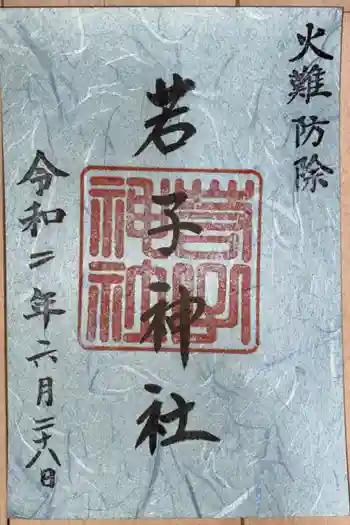 火難防除
若子神社
若子
神社
令和二年六月二十八日